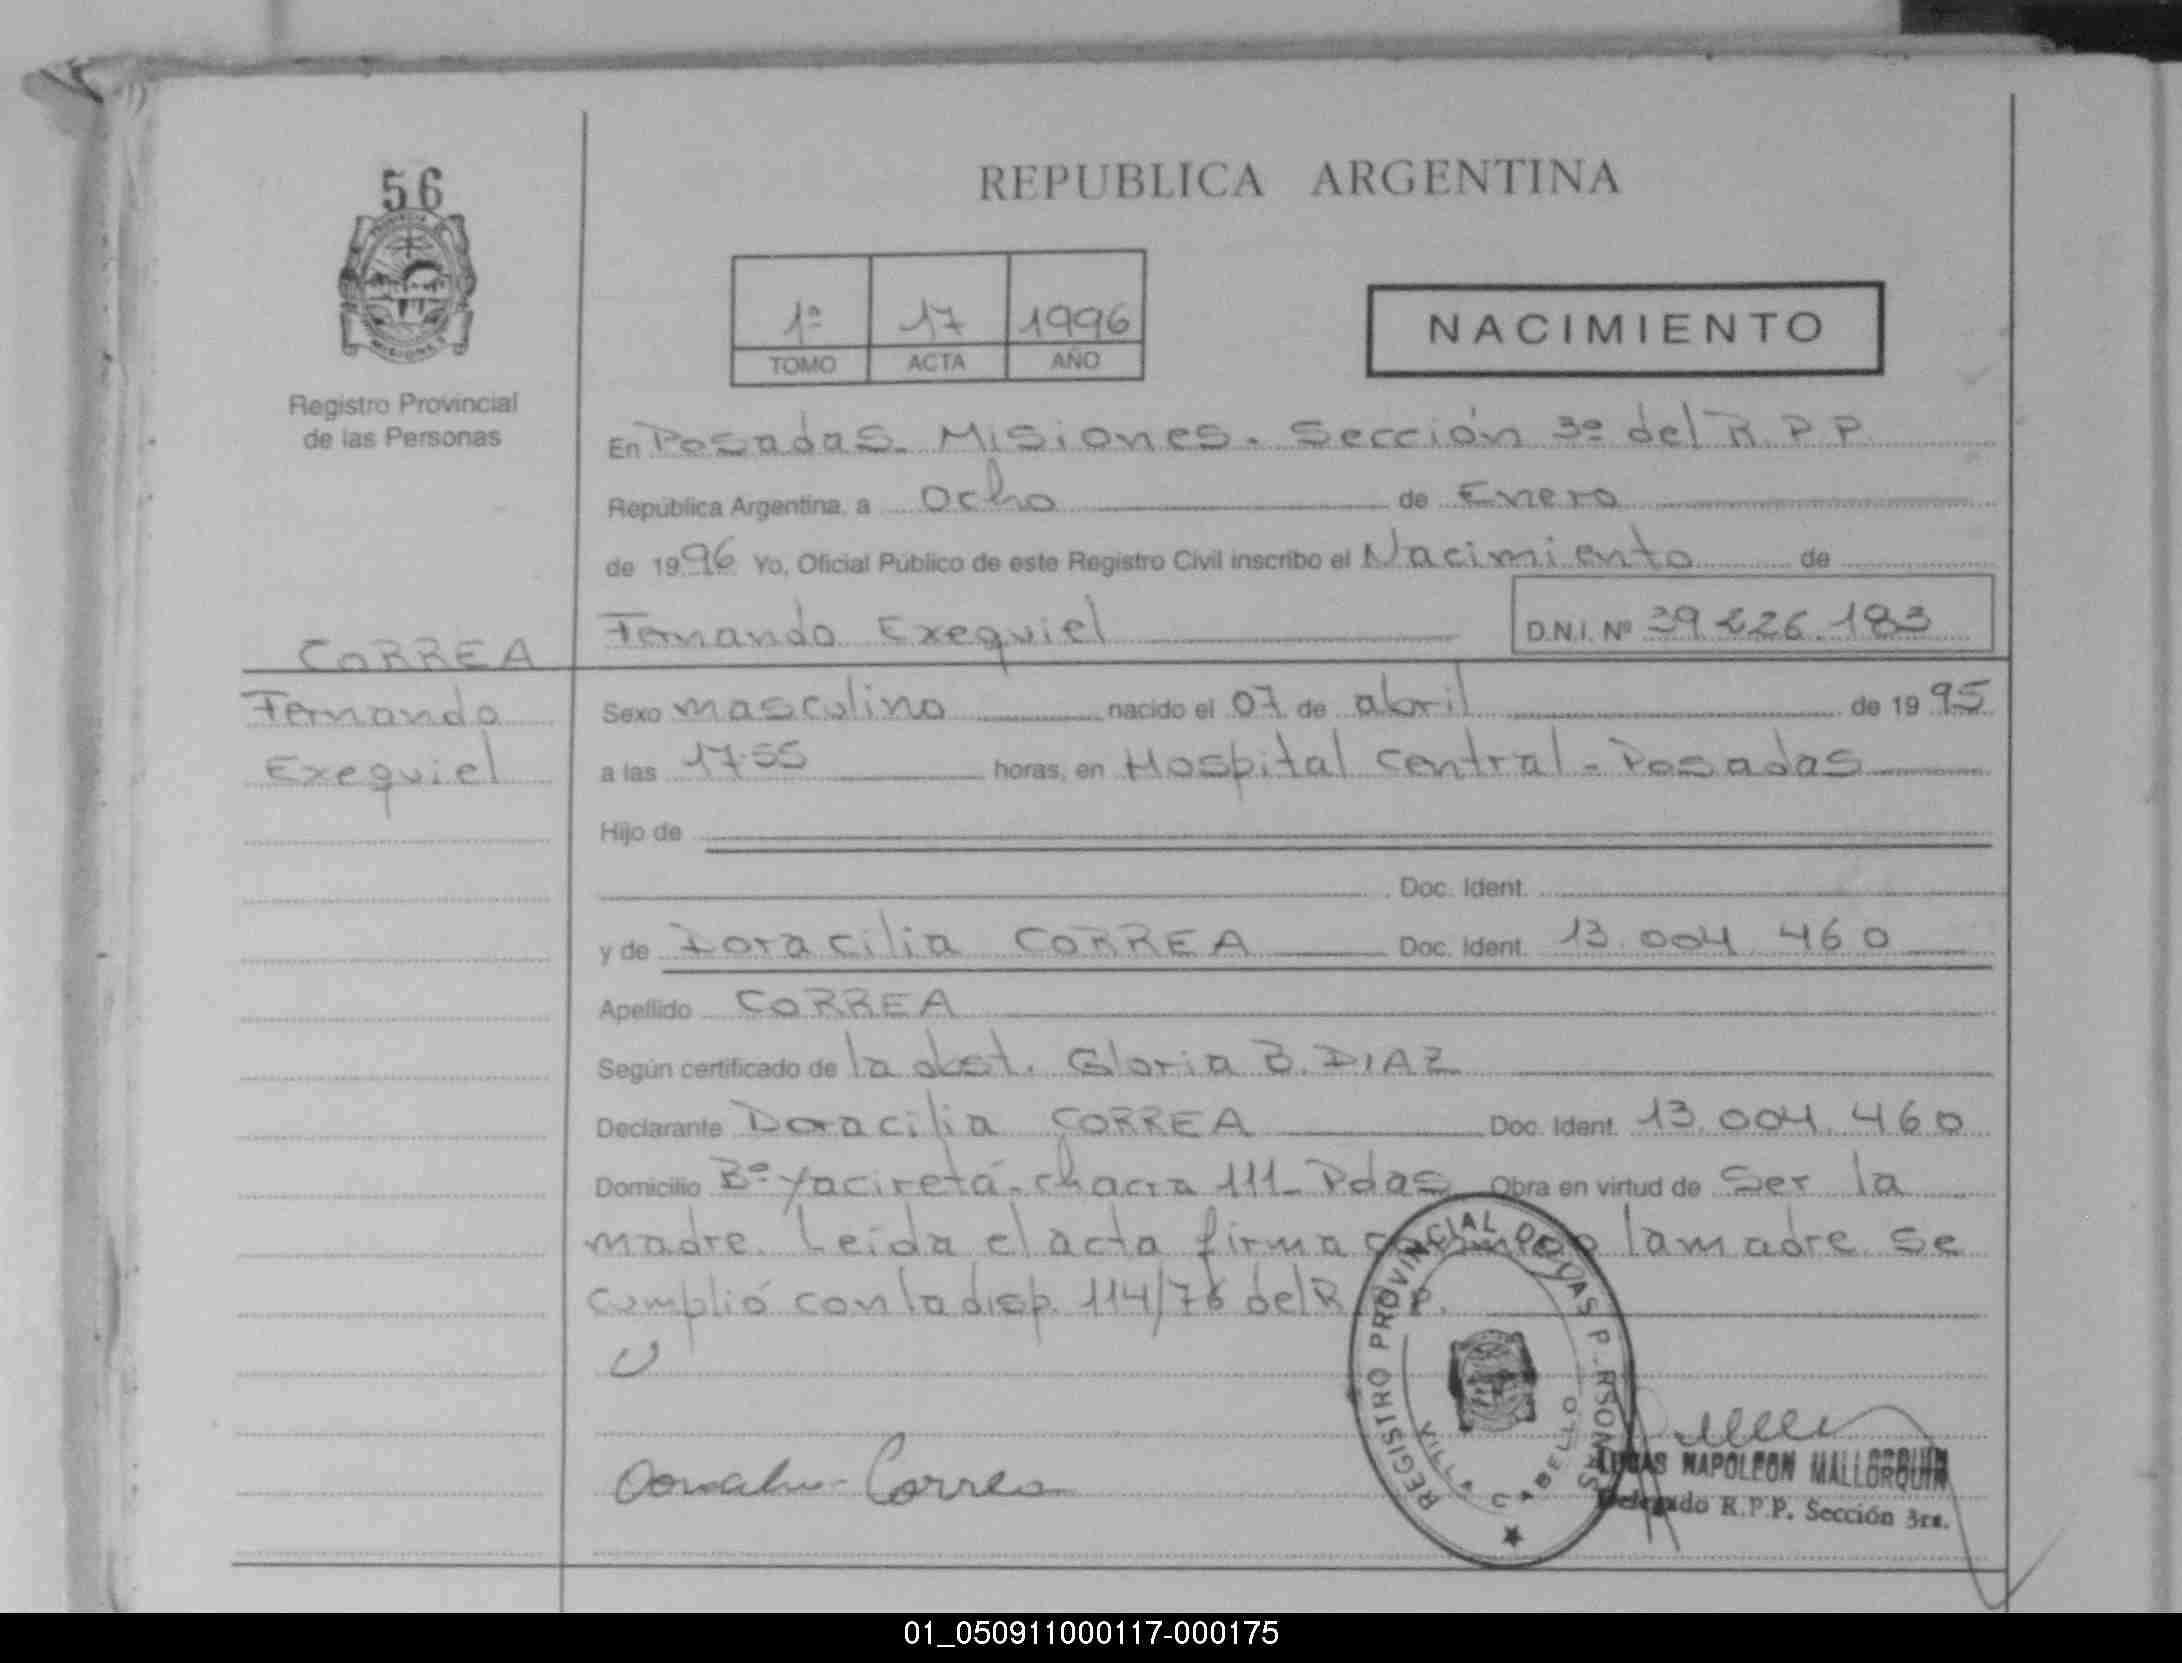 56
REPUBLICA ARGENTINA
1º 17 1996
TOMO ACTA AÑO
NACIMIENTO
Registro Provincial
de las Personas
En Posadas Misiones. Sección 3º del R.P.P.
República Argentina, a Ocho de Enero
de 1996 Yo, Oficial Público de este Registro Civil inscribo el Nacimiento de
Fernando Exequiel D.N.I. Nº 39.226.183
CORREA
Fernando
Exequiel
Sexo masculino nacido el 07 de abril de 1995
a las 17.55 horas, en Hospital Central - Posadas
Hijo de
Doc. Ident.
y de Doracilia CORREA Doc. Ident. 13.004.460
Apellido CORREA
Según certificado de la obst. Gloria B. DIAZ
Declarante Doracilia CORREA Doc. Ident. 13.004.460
Domicilio Bº Yaciretá - chacra 111 - Pdas Obra en virtud de Ser la
madre. Leída el acta firma conmigo la madre. Se
cumplió con la disp. 114/76 del R.P.P.
REGISTRO PROVINCIAL DE LAS PERSONAS
VILLA CABELLO
Correa
LUCAS NAPOLEON MALLORQUIN
Delegado R.P.P. Sección 3ra.
01_050911000117-000175